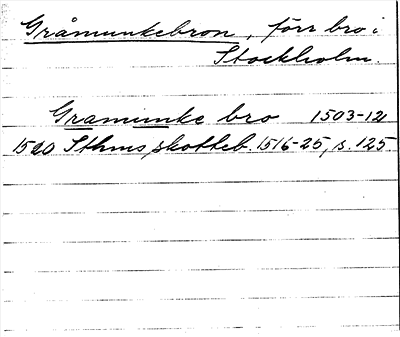 Gråmunkebron, förr bro i
Stockholm.
Gramunke bro 1503-12
1520 Sthms skotteb. 1516-25, s. 125